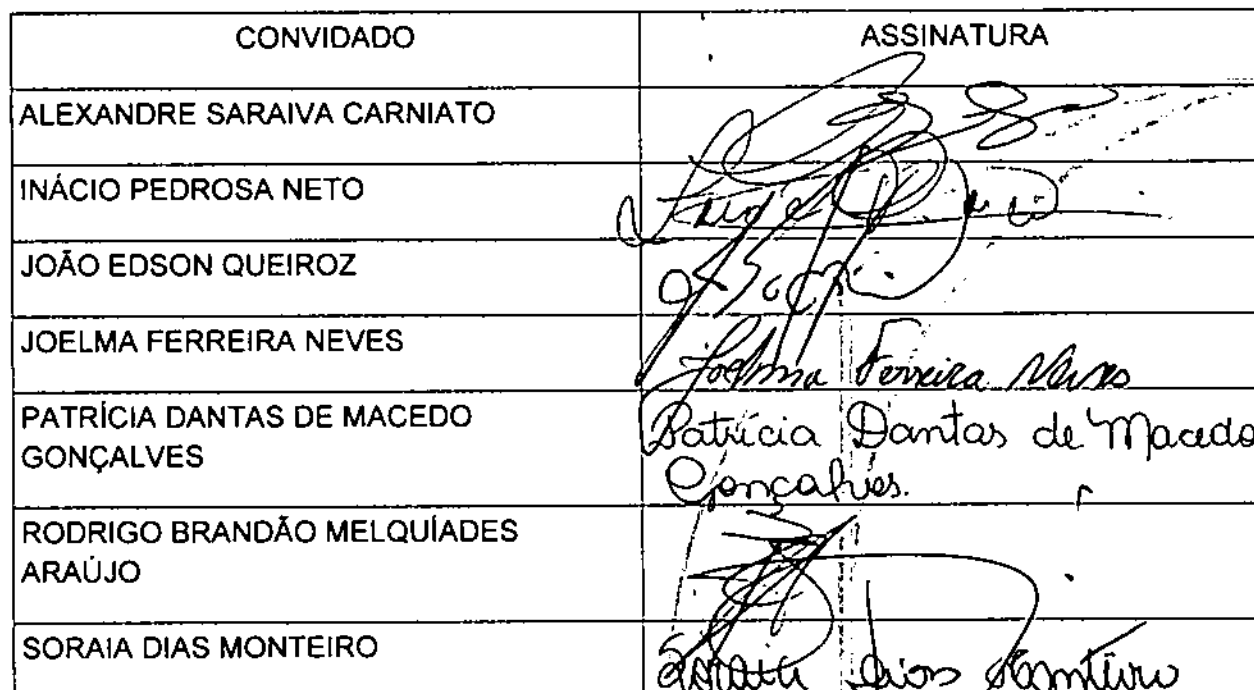 CONVIDADO ASSINATURA
ALEXANDRE SARAIVA CARNIATO
INÁCIO PEDROSA NETO
JOÃO EDSON QUEIROZ
JOELMA FERREIRA NEVES Joelma Ferreira Neves
PATRÍCIA DANTAS DE MACEDO Patrícia Dantas de Macedo
GONÇALVES Gonçalves.
RODRIGO BRANDÃO MELQUÍADES
ARAÚJO
SORAIA DIAS MONTEIRO Soraia Dias Monteiro